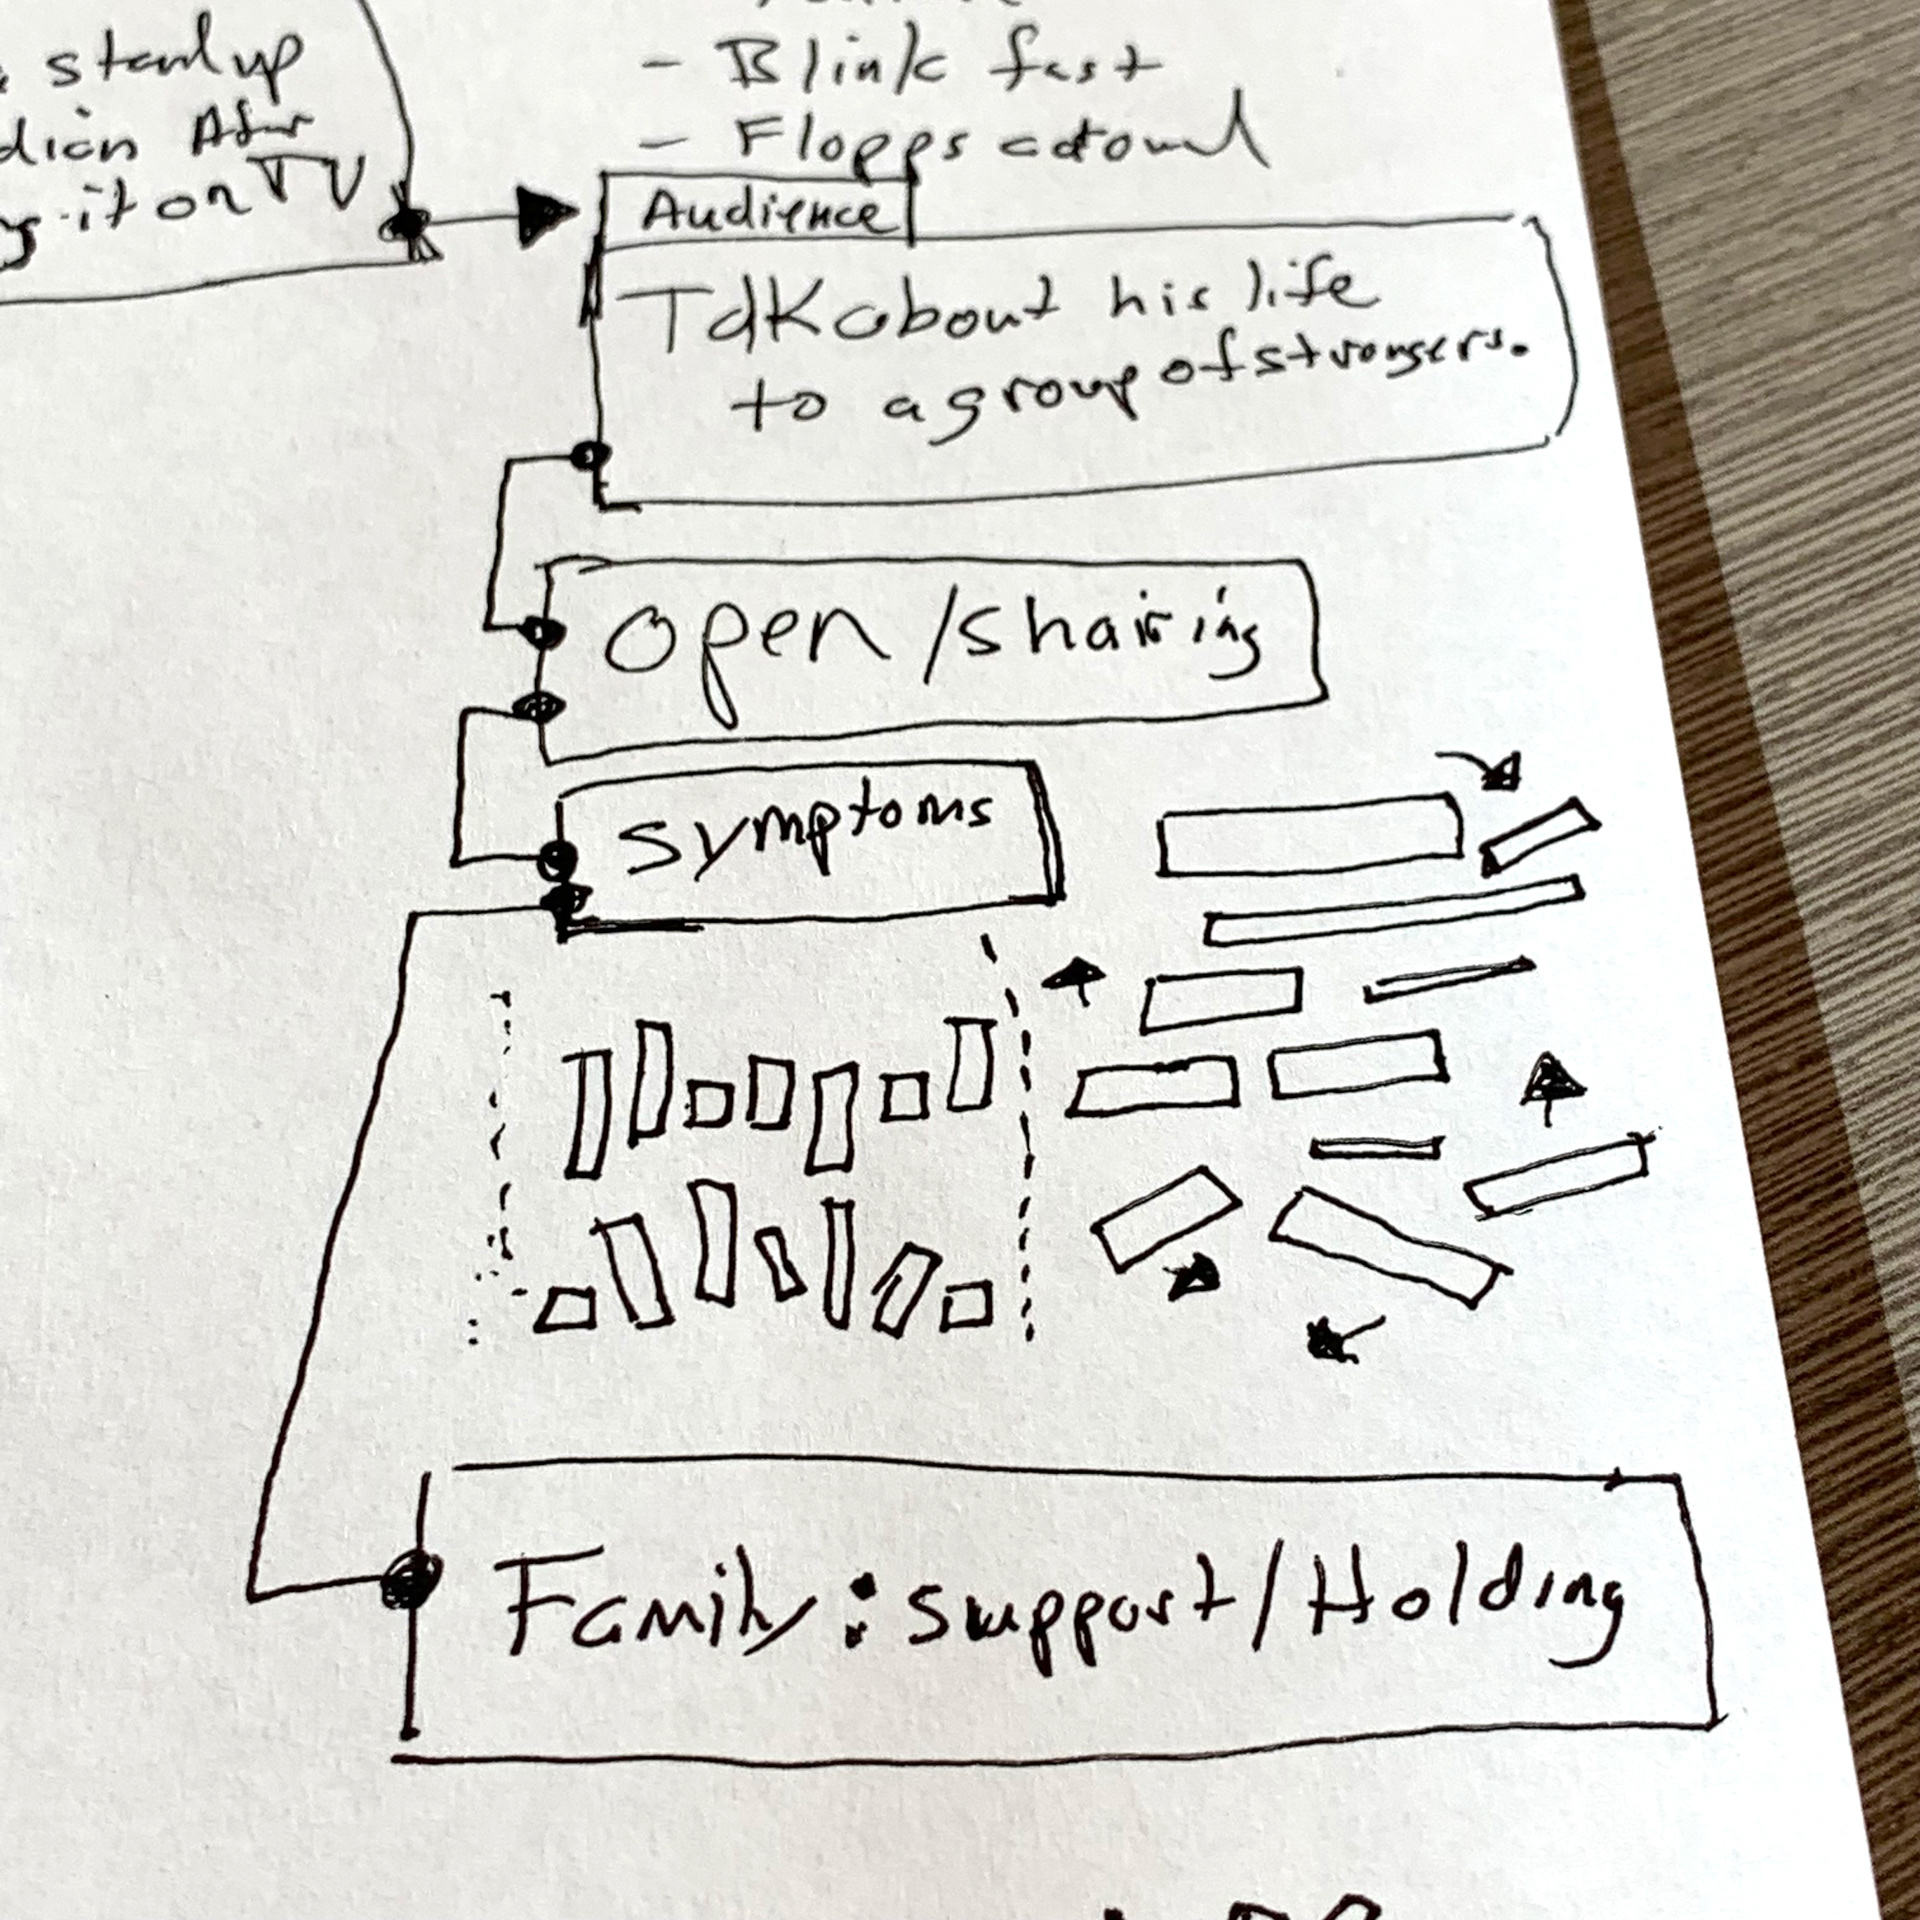 standup
dian After
it on TV
- Blink fast
- Flopps around
Audience
Talk about his life
to a group of strangers.
open/shairing
symptoms
Family: support/Holding